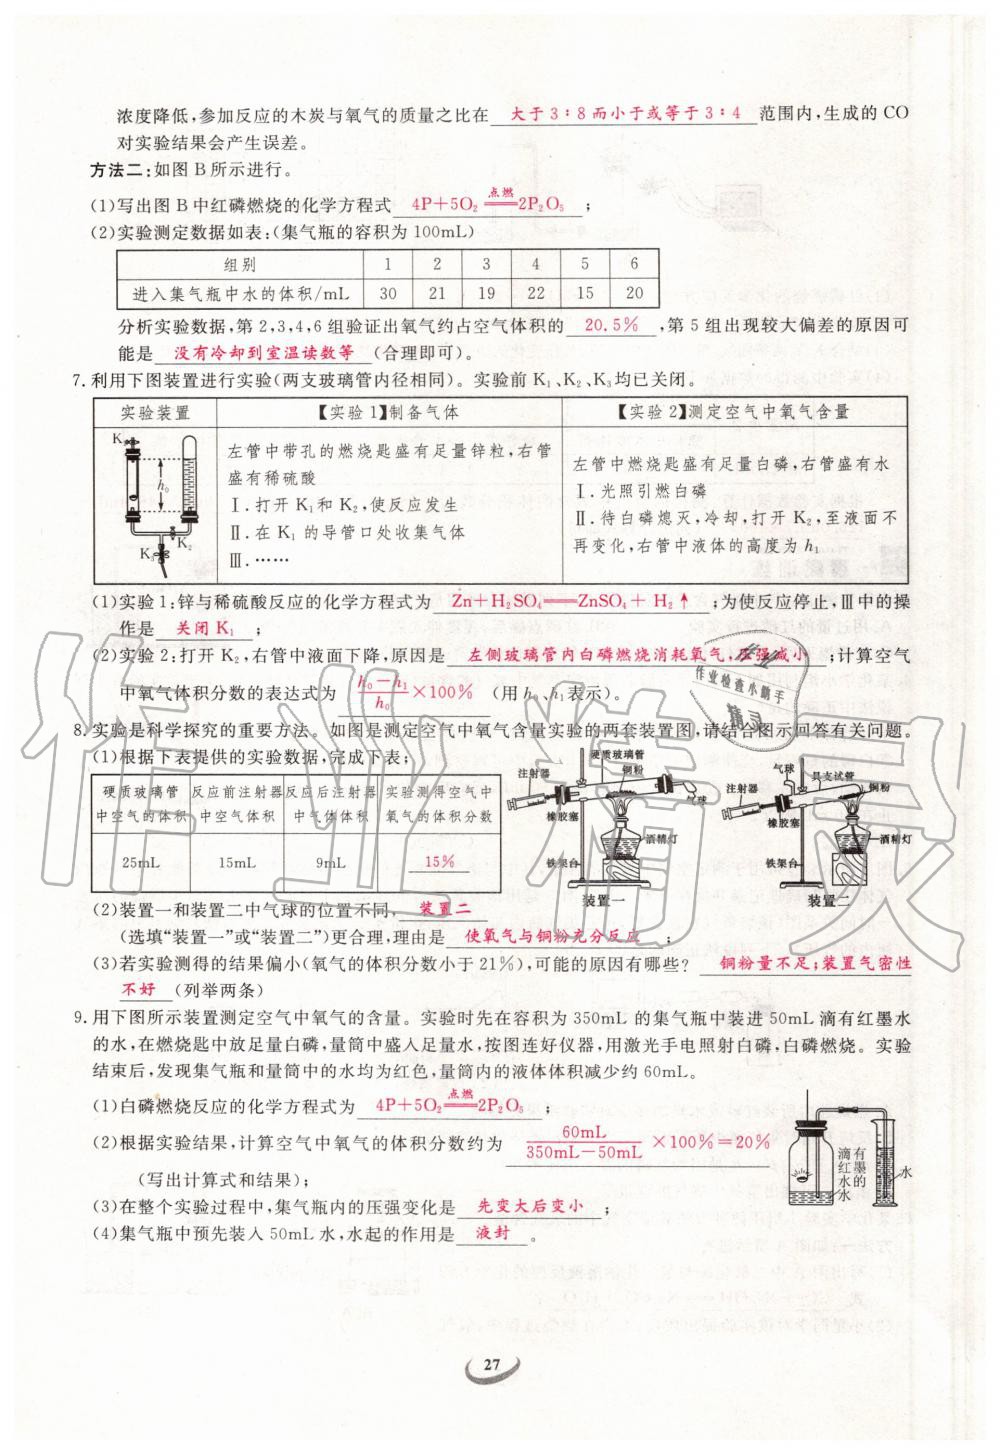 浓度降低,参加反应的木炭与氧气的质量之比在 大于3:8而小于或等于3:4 范围内,生成的CO
对实验结果会产生误差。
方法二:如图B所示进行。
(1)写出图B中红磷燃烧的化学方程式 4P+5O₂ 点燃══ 2P₂O₅ ;
(2)实验测定数据如表:(集气瓶的容积为100mL)
组别 1 2 3 4 5 6
进入集气瓶中水的体积/mL 30 21 19 22 15 20
分析实验数据,第2,3,4,6组验证出氧气约占空气体积的 20.5% ,第5组出现较大偏差的原因可
能是 没有冷却到室温读数等 (合理即可)。
7.利用下图装置进行实验(两支玻璃管内径相同)。实验前K₁、K₂、K₃均已关闭。
实验装置 【实验1】制备气体 【实验2】测定空气中氧气含量
K₁
h₀
K₂
K₃
左管中带孔的燃烧匙盛有足量锌粒,右管
盛有稀硫酸
Ⅰ.打开K₁和K₂,使反应发生
Ⅱ.在K₁的导管口处收集气体
Ⅲ.……
左管中燃烧匙盛有足量白磷,右管盛有水
Ⅰ.光照引燃白磷
Ⅱ.待白磷熄灭,冷却,打开K₂,至液面不
再变化,右管中液体的高度为h₁
(1)实验1:锌与稀硫酸反应的化学方程式为 Zn+H₂SO₄══ZnSO₄+H₂↑ ;为使反应停止,Ⅲ中的操
作是 关闭K₁ ;
(2)实验2:打开K₂,右管中液面下降,原因是 左侧玻璃管内白磷燃烧消耗氧气,压强减小 ;计算空气
中氧气体积分数的表达式为 (h₀-h₁)/h₀×100% (用h₀、h₁表示)。
8.实验是科学探究的重要方法。如图是测定空气中氧气含量实验的两套装置图,请结合图示回答有关问题。
(1)根据下表提供的实验数据,完成下表;
硬质玻璃管中空气的体积 反应前注射器中空气体积 反应后注射器中气体体积 实验测得空气中氧气的体积分数
25mL 15mL 9mL 15%
注射器 硬质玻璃管 铜粉 气球 橡胶塞 酒精灯 铁架台
装置一
注射器 气球 具支试管 铜粉 橡胶塞 酒精灯 铁架台
装置二
(2)装置一和装置二中气球的位置不同, 装置二
(选填“装置一”或“装置二”)更合理,理由是 使氧气与铜粉充分反应 ;
(3)若实验测得的结果偏小(氧气的体积分数小于21%),可能的原因有哪些? 铜粉量不足;装置气密性
不好 (列举两条)
9.用下图所示装置测定空气中氧气的含量。实验时先在容积为350mL的集气瓶中装进50mL滴有红墨水
的水,在燃烧匙中放足量白磷,量筒中盛入足量水,按图连好仪器,用激光手电照射白磷,白磷燃烧。实验
结束后,发现集气瓶和量筒中的水均为红色,量筒内的液体体积减少约60mL。
(1)白磷燃烧反应的化学方程式为 4P+5O₂ 点燃══ 2P₂O₅ ;
(2)根据实验结果,计算空气中氧气的体积分数约为 60mL/(350mL-50mL) ×100%=20%
(写出计算式和结果);
(3)在整个实验过程中,集气瓶内的压强变化是 先变大后变小 ;
(4)集气瓶中预先装入50mL水,水起的作用是 液封 。
滴有红墨水的水
水
27
作业精灵
作业检查小助手
精灵